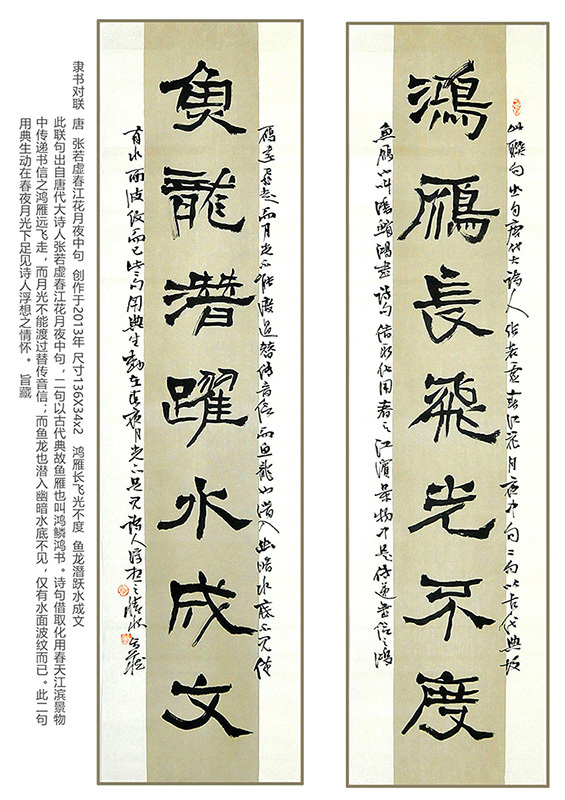 鴻鴈長飛光不度
此聯句出自唐代大詩人張若虛春江花月夜中句二句以古代典故
魚鴈也叫鴻鱗鴻書詩句借取化用春之江濱景物中是傳遞書信之鴻
魚龍潛躍水成文
鴈遠飛走而月光不能渡過替傳音信而魚龍也潛入幽暗水底不見僅
有水面波紋而已此二句用典生動在春夜月光下足見詩人浮想之情怀 旨藏
隶书对联 唐 张若虚春江花月夜中句 创作于2013年 尺寸136X34x2 鸿雁长飞光不度 鱼龙潜跃水成文
此联句出自唐代大诗人张若虚春江花月夜中句，二句以古代典故鱼雁也叫鸿鳞鸿书。诗句借取化用春天江滨景物
中传递书信之鸿雁远飞走，而月光不能渡过替传音信；而鱼龙也潜入幽暗水底不见，仅有水面波纹而已。此二句
用典生动在春夜月光下足见诗人浮想之情怀。 旨藏